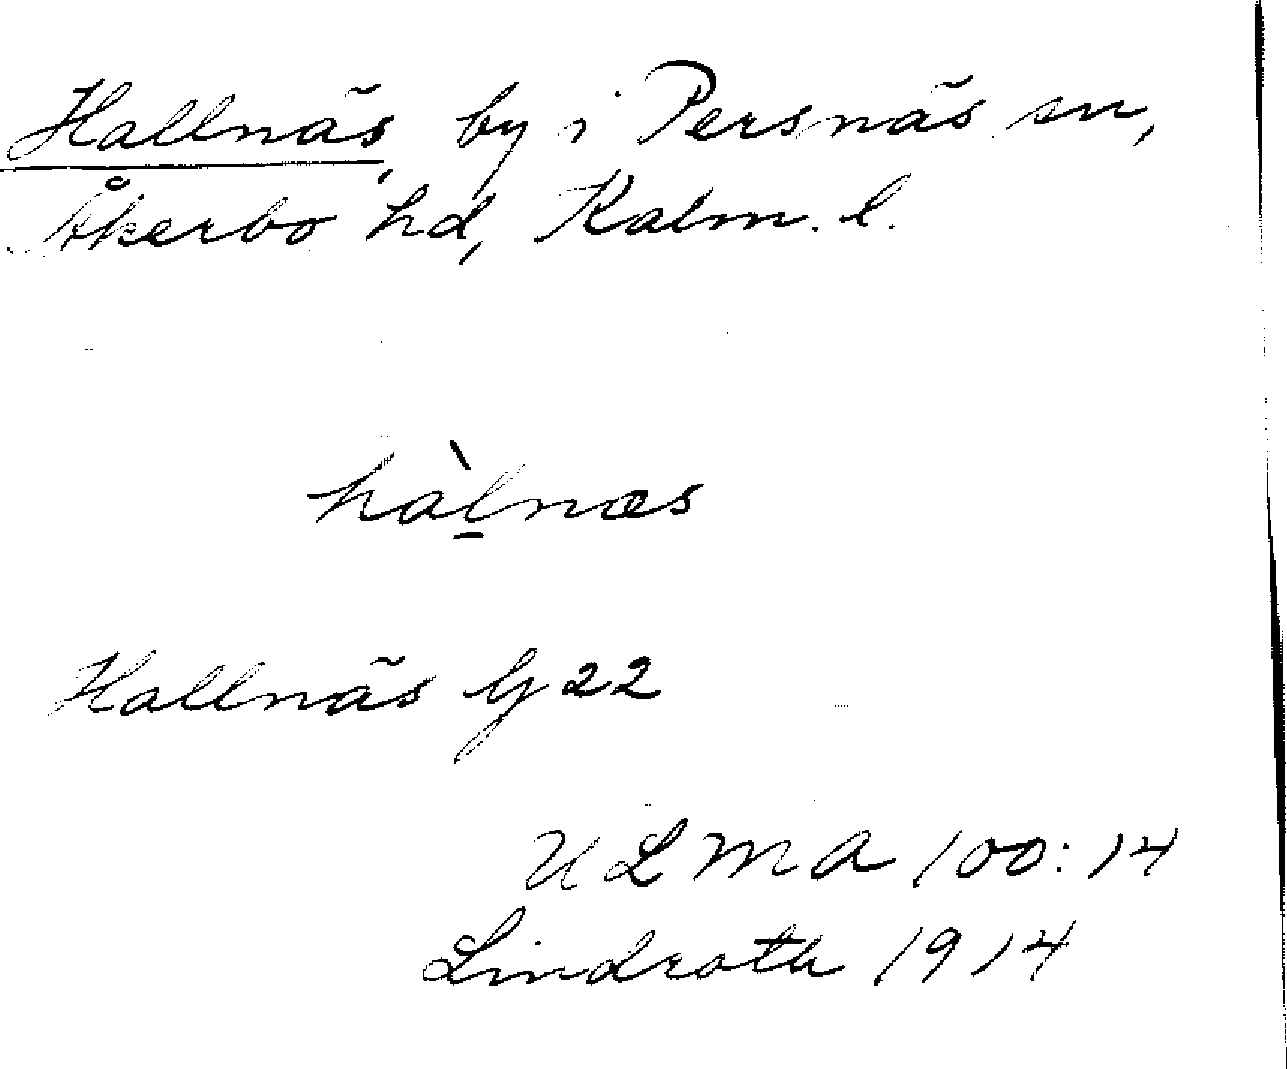 Hallnäs, by i Persnäs sn,
Åkerbo hd, Kalm. l.
hàl̠næs
Hallnäs G 22
ULMA 100:14
Lindroth 1914